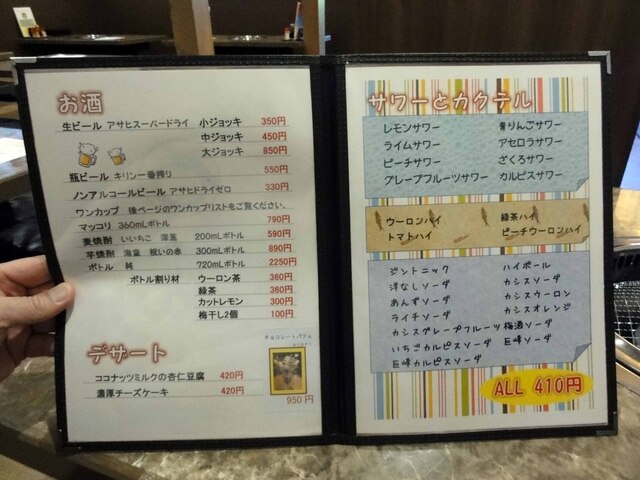 お酒
生ビール アサヒスーパードライ 小ジョッキ 350円
中ジョッキ 450円
大ジョッキ 850円
瓶ビール キリン一番搾り 550円
ノンアルコールビール アサヒドライゼロ 330円
ワンカップ 後ページのワンカップリストをご覧ください。
マッコリ 360mLボトル 790円
麦焼酎 いいちこ 200mLボトル 590円
芋焼酎 海童 祝いの赤 300mLボトル 890円
ボトル 720mLボトル 2250円
ボトル割り材 ウーロン茶 360円
緑茶 360円
カットレモン 300円
梅干し2個 100円
デザート
チョコレートパフェ
ココナッツミルクの杏仁豆腐 420円
濃厚チーズケーキ 420円
950円
サワーとカクテル
レモンサワー 青りんごサワー
ライムサワー アセロラサワー
ピーチサワー ざくろサワー
グレープフルーツサワー カルピスサワー
ウーロンハイ 緑茶ハイ
トマトハイ ピーチウーロンハイ
ジントニック ハイボール
洋なしソーダ カシスソーダ
あんずソーダ カシスウーロン
ライチソーダ カシスオレンジ
カシスグレープフルーツ 梅酒ソーダ
いちごカルピスソーダ 巨峰ソーダ
巨峰カルピスソーダ
ALL 410円